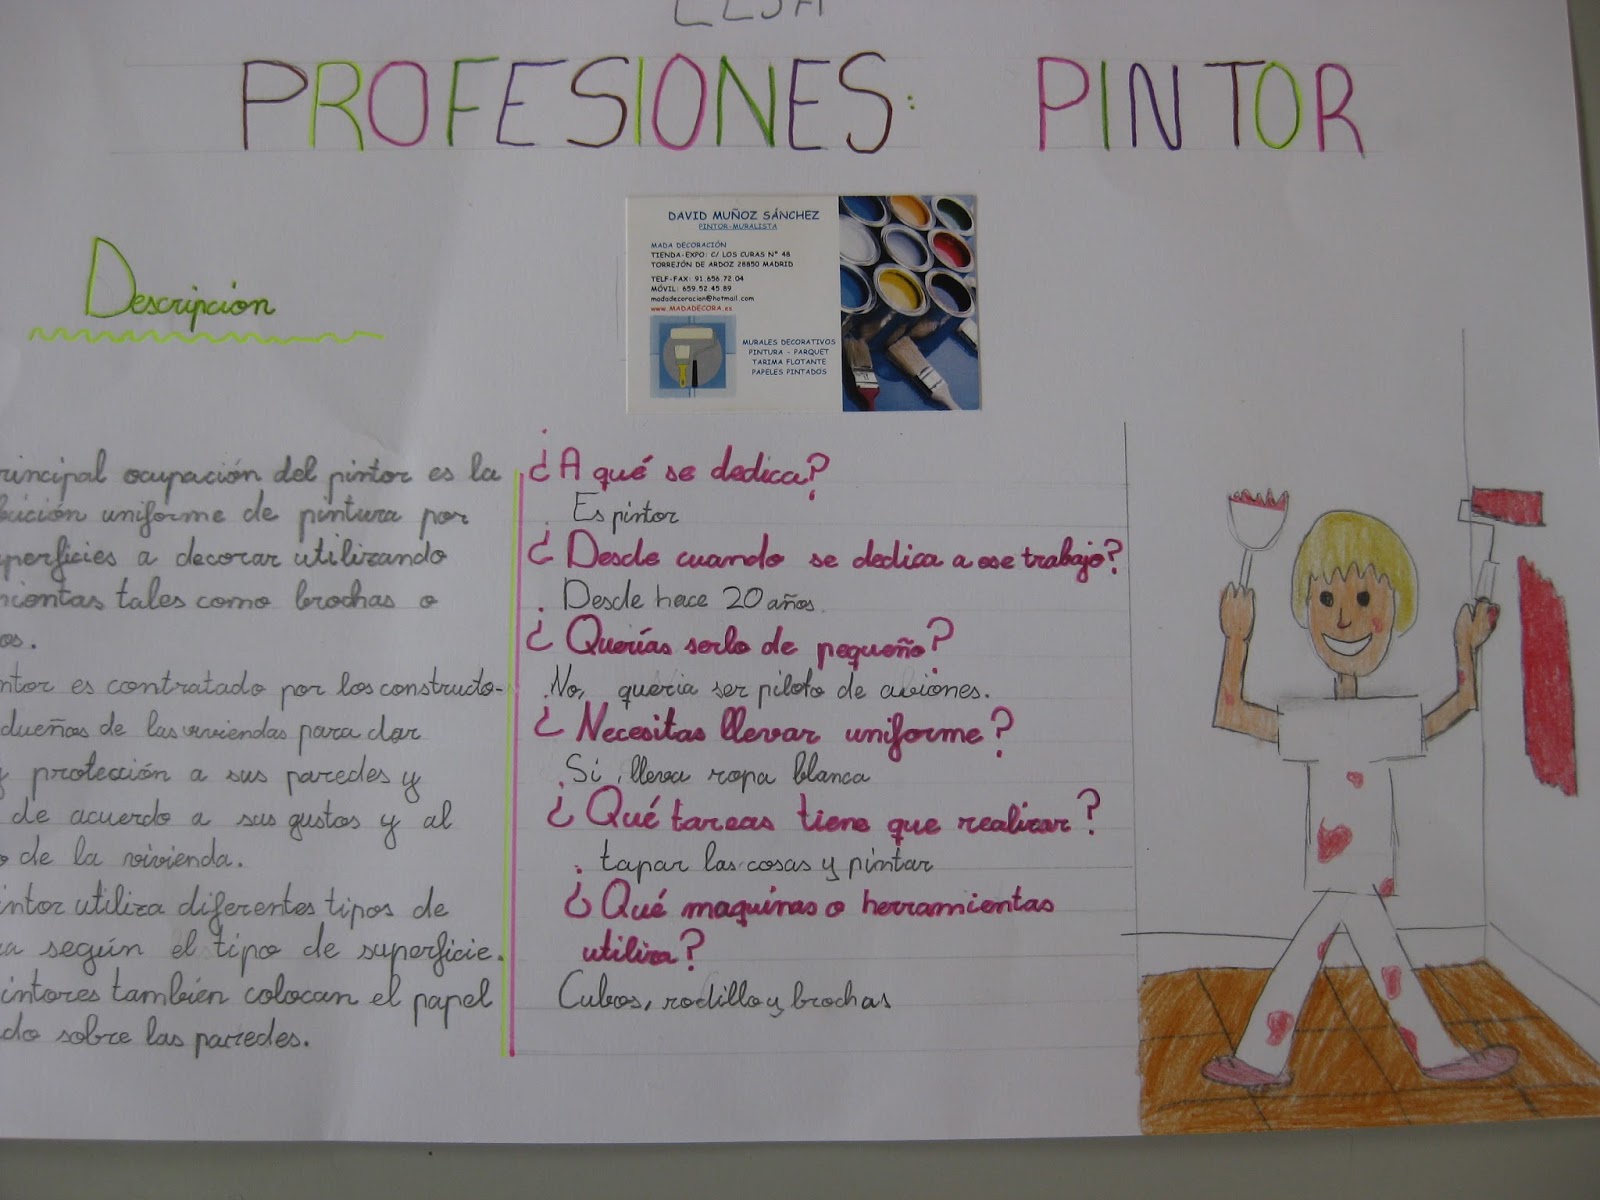 ELSA
PROFESIONES: PINTOR
DAVID MUÑOZ SÁNCHEZ
PINTOR-MURALISTA
MADA DECORACIÓN
TIENDA-EXPO: C/ LOS CURAS Nº 48
TORREJÓN DE ARDOZ 28850 MADRID
TELF-FAX: 91.656.72 04
MÓVIL: 659.52.45.89
madadecoracion@hotmail.com
www.MADADECORA.es
MURALES DECORATIVOS
PINTURA - PARQUET
TARIMA FLOTANTE
PAPELES PINTADOS
Descripcion
rincipal ocupación del pintor es la
bución uniforme de pintura por
perficies a decorar utilizando
mientas tales como brochas o
os.
ntor es contratado por los constructo-
dueños de las viviendas para dar
y protección a sus paredes y
de acuerdo a sus gustos y al
o de la vivienda.
intor utiliza diferentes tipos de
ra según el tipo de superficie.
intores también colocan el papel
do sobre las paredes.
¿A qué se dedica?
Es pintor
¿Desde cuando se dedica a ese trabajo?
Desde hace 20 años.
¿Querías serlo de pequeño?
No, queria ser piloto de aviones.
¿Necesitas llevar uniforme?
Si, lleva ropa blanca
¿Qué tareas tiene que realizar?
tapar las cosas y pintar
¿Qué maquinas o herramientas
utiliza?
Cubos, rodillo y brochas